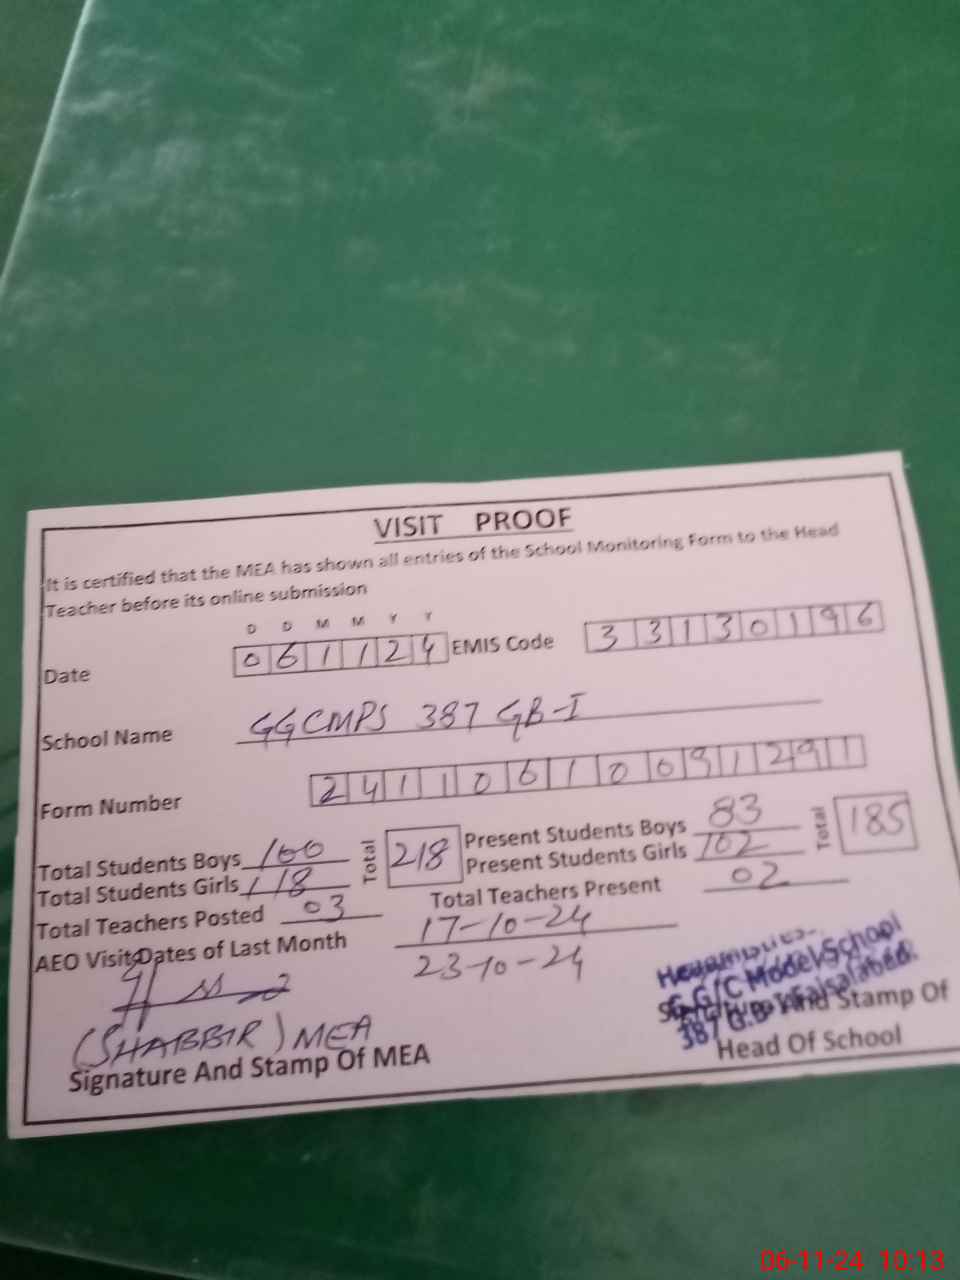 VISIT PROOF
It is certified that the MEA has shown all entries of the School Monitoring Form to the Head
Teacher before its online submission
D D M M Y Y
Date 061124 EMIS Code 33130196
School Name GGCMPS 387 GB-I
Form Number 241106100912291
Total Students Boys 100 Total 218 Present Students Boys 83 Total 185
Total Students Girls 118 Present Students Girls 102
Total Teachers Posted 03 Total Teachers Present 02
AEO Visit Dates of Last Month 17-10-24
23-10-24
(SHABBIR) MEA
Signature And Stamp Of MEA
G.G/C Model School
387 G.B Faisalabad.
Signature And Stamp Of
Head Of School
06-11-24 10:13